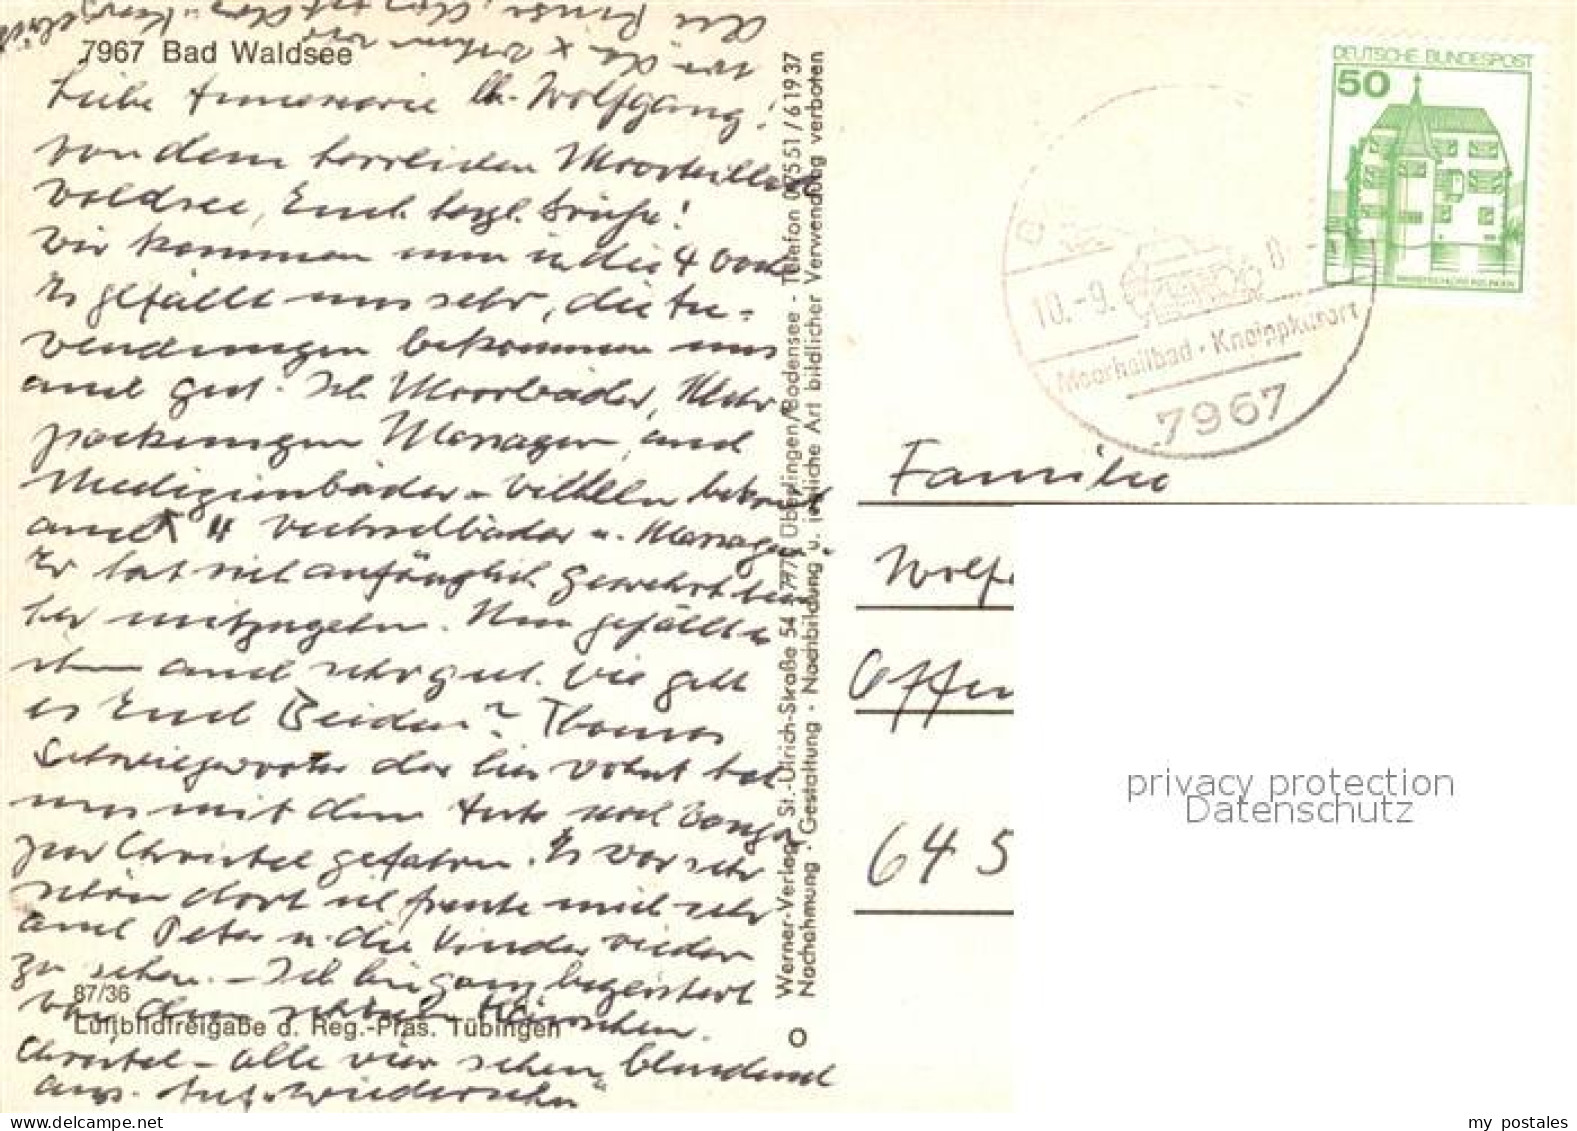 7967 Bad Waldsee
Liebe Annemarie u. Wolfgang!
von dem herrlichen Moorheilbad
Waldsee, Euch herzl. Grüße!
Wir kommen nun in die 4 Woche
Es gefällt uns sehr, die An-
wendungen bekommen uns
auch gut. Ich Moorbäder,
packungen Massagen und
Medizienbäder - Wilhelm bekommt
auch 4 Wechselbäder u. Massagen
Er hat sich anfänglich gewehrt hier
her mitzugehen. Nun gefällt es
ihm auch sehr gut. Wie geht
es Euch Beiden? Thomas
Schwiegervater der hier wohnt hat
uns mit dem Auto nach
zur Christel gefahren. Es war sehr
schön dort ich freute mich sehr
auch Peter u. die Kinder wieder
zu sehen. - Ich bin ganz begeistert
von dem schönen Häuschen.
Christel - alle vier sehen blendend
aus. Auf-Wiedersehn
87/36
Luftbildfreigabe d. Reg.-Präs. Tübingen
Werner-Verlag, St.-Ulrich-Straße 54 · 7770 Überlingen/Bodensee - Telefon 07551/61937
Nachahmung · Gestaltung · Nachbildung u. jegliche Art bildlicher Verwendung verboten
DEUTSCHE BUNDESPOST
50
10.-9.
Moorheilbad · Kneippkurort
7967
Familie
Wolf
Offen
645
privacy protection
Datenschutz
my postales